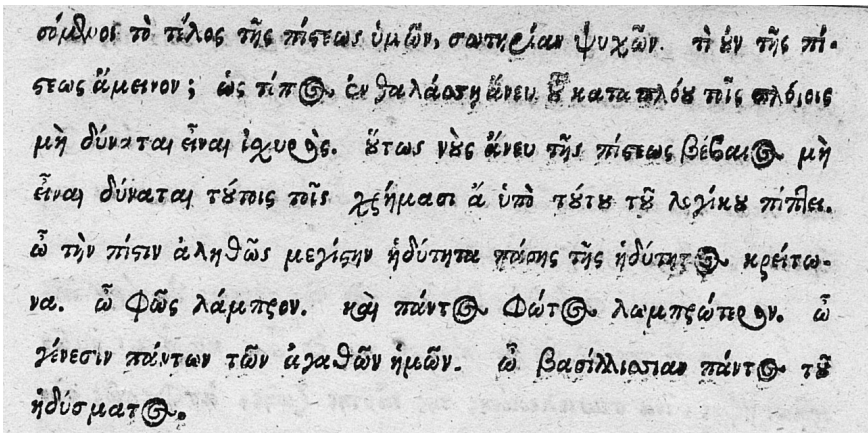 σόμενοι τὸ τέλος τῆς πίστεως ὑμῶν, σωτηρίαν ψυχῶν. τὶ ὖν τῆς πί-
στεως ἄμεινον; ὡς τόπος ἐν θαλάσση ἄνευ τοῦ καταπλόου τοῖς πλόιοις
μὴ δύναται εἶναι ἰχυρὸς. οὕτως νοὺς ἄνευ τῆς πίστεως βέβαιος μὴ
εἶναι δύναται τούτοις τοῖς χρήμασι ἅ ὑπὸ τούτου τοῦ λογίκου πίπτει.
ὦ τὴν πίστιν ἀληθῶς μεγίστην ἡδύτητα πάσης τῆς ἡδύτητος κρείτω-
να. ὦ Φῶς λάμπρον. καὶ πάντος Φώτος λαμπρώτερον. ὦ
γένεσιν πάντων τῶν ἀγαθῶν ἡμῶν. ὦ πάντος τοῦ
ἡδύσματος.